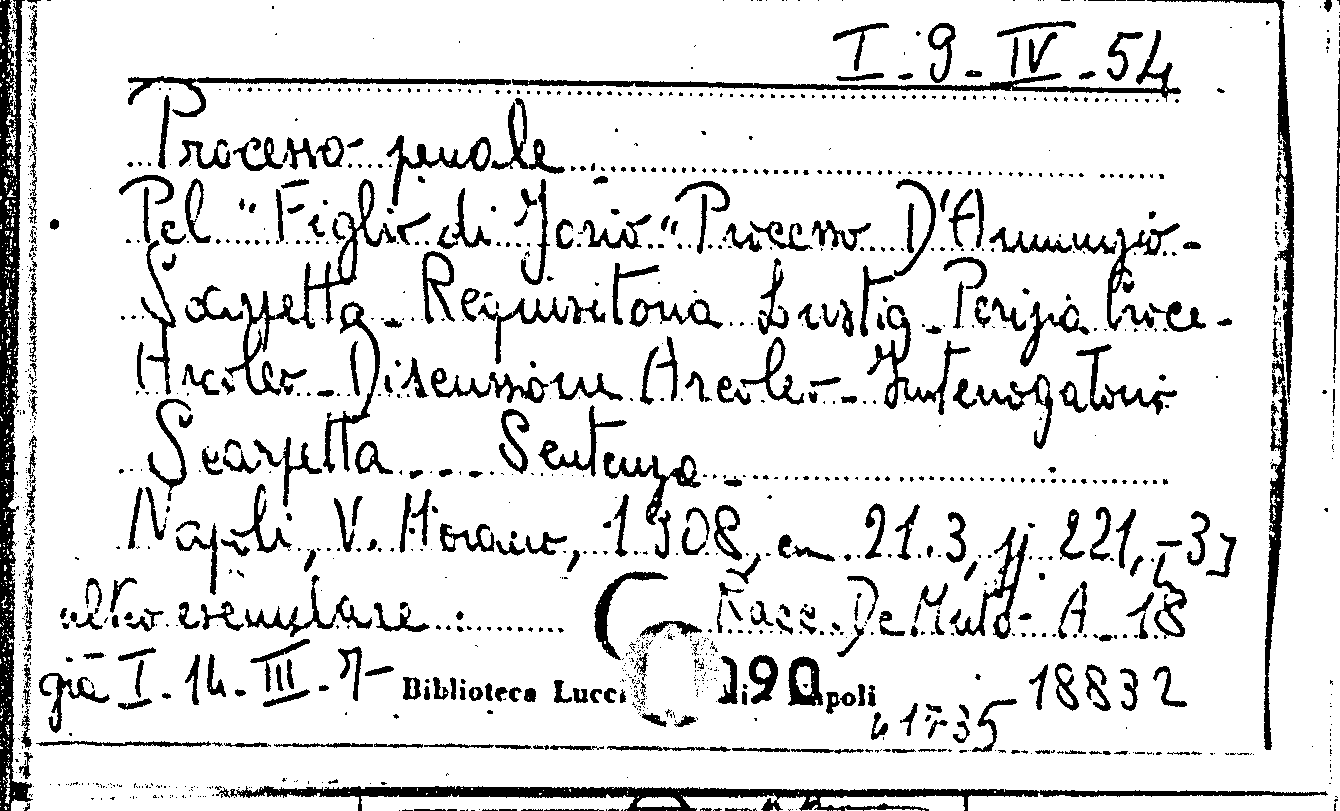 I-9-IV-54
Processo penale
Pel "Figlio di Jorio" Processo D'Annunzio-
Scarpetta - Requisitoria Lustig - Perizia Croce-
Arcoleo - Discussione Arcoleo - Interrogatorio
Scarpetta - - - Sentenza -
Napoli, V. Morano, 1908, cm. 21.3, pp. 221, [-3]
altro esemplare : Racc. De Muto - A - 18
già I-14-III-7- Biblioteca Lucchesi 190 Napoli 18832